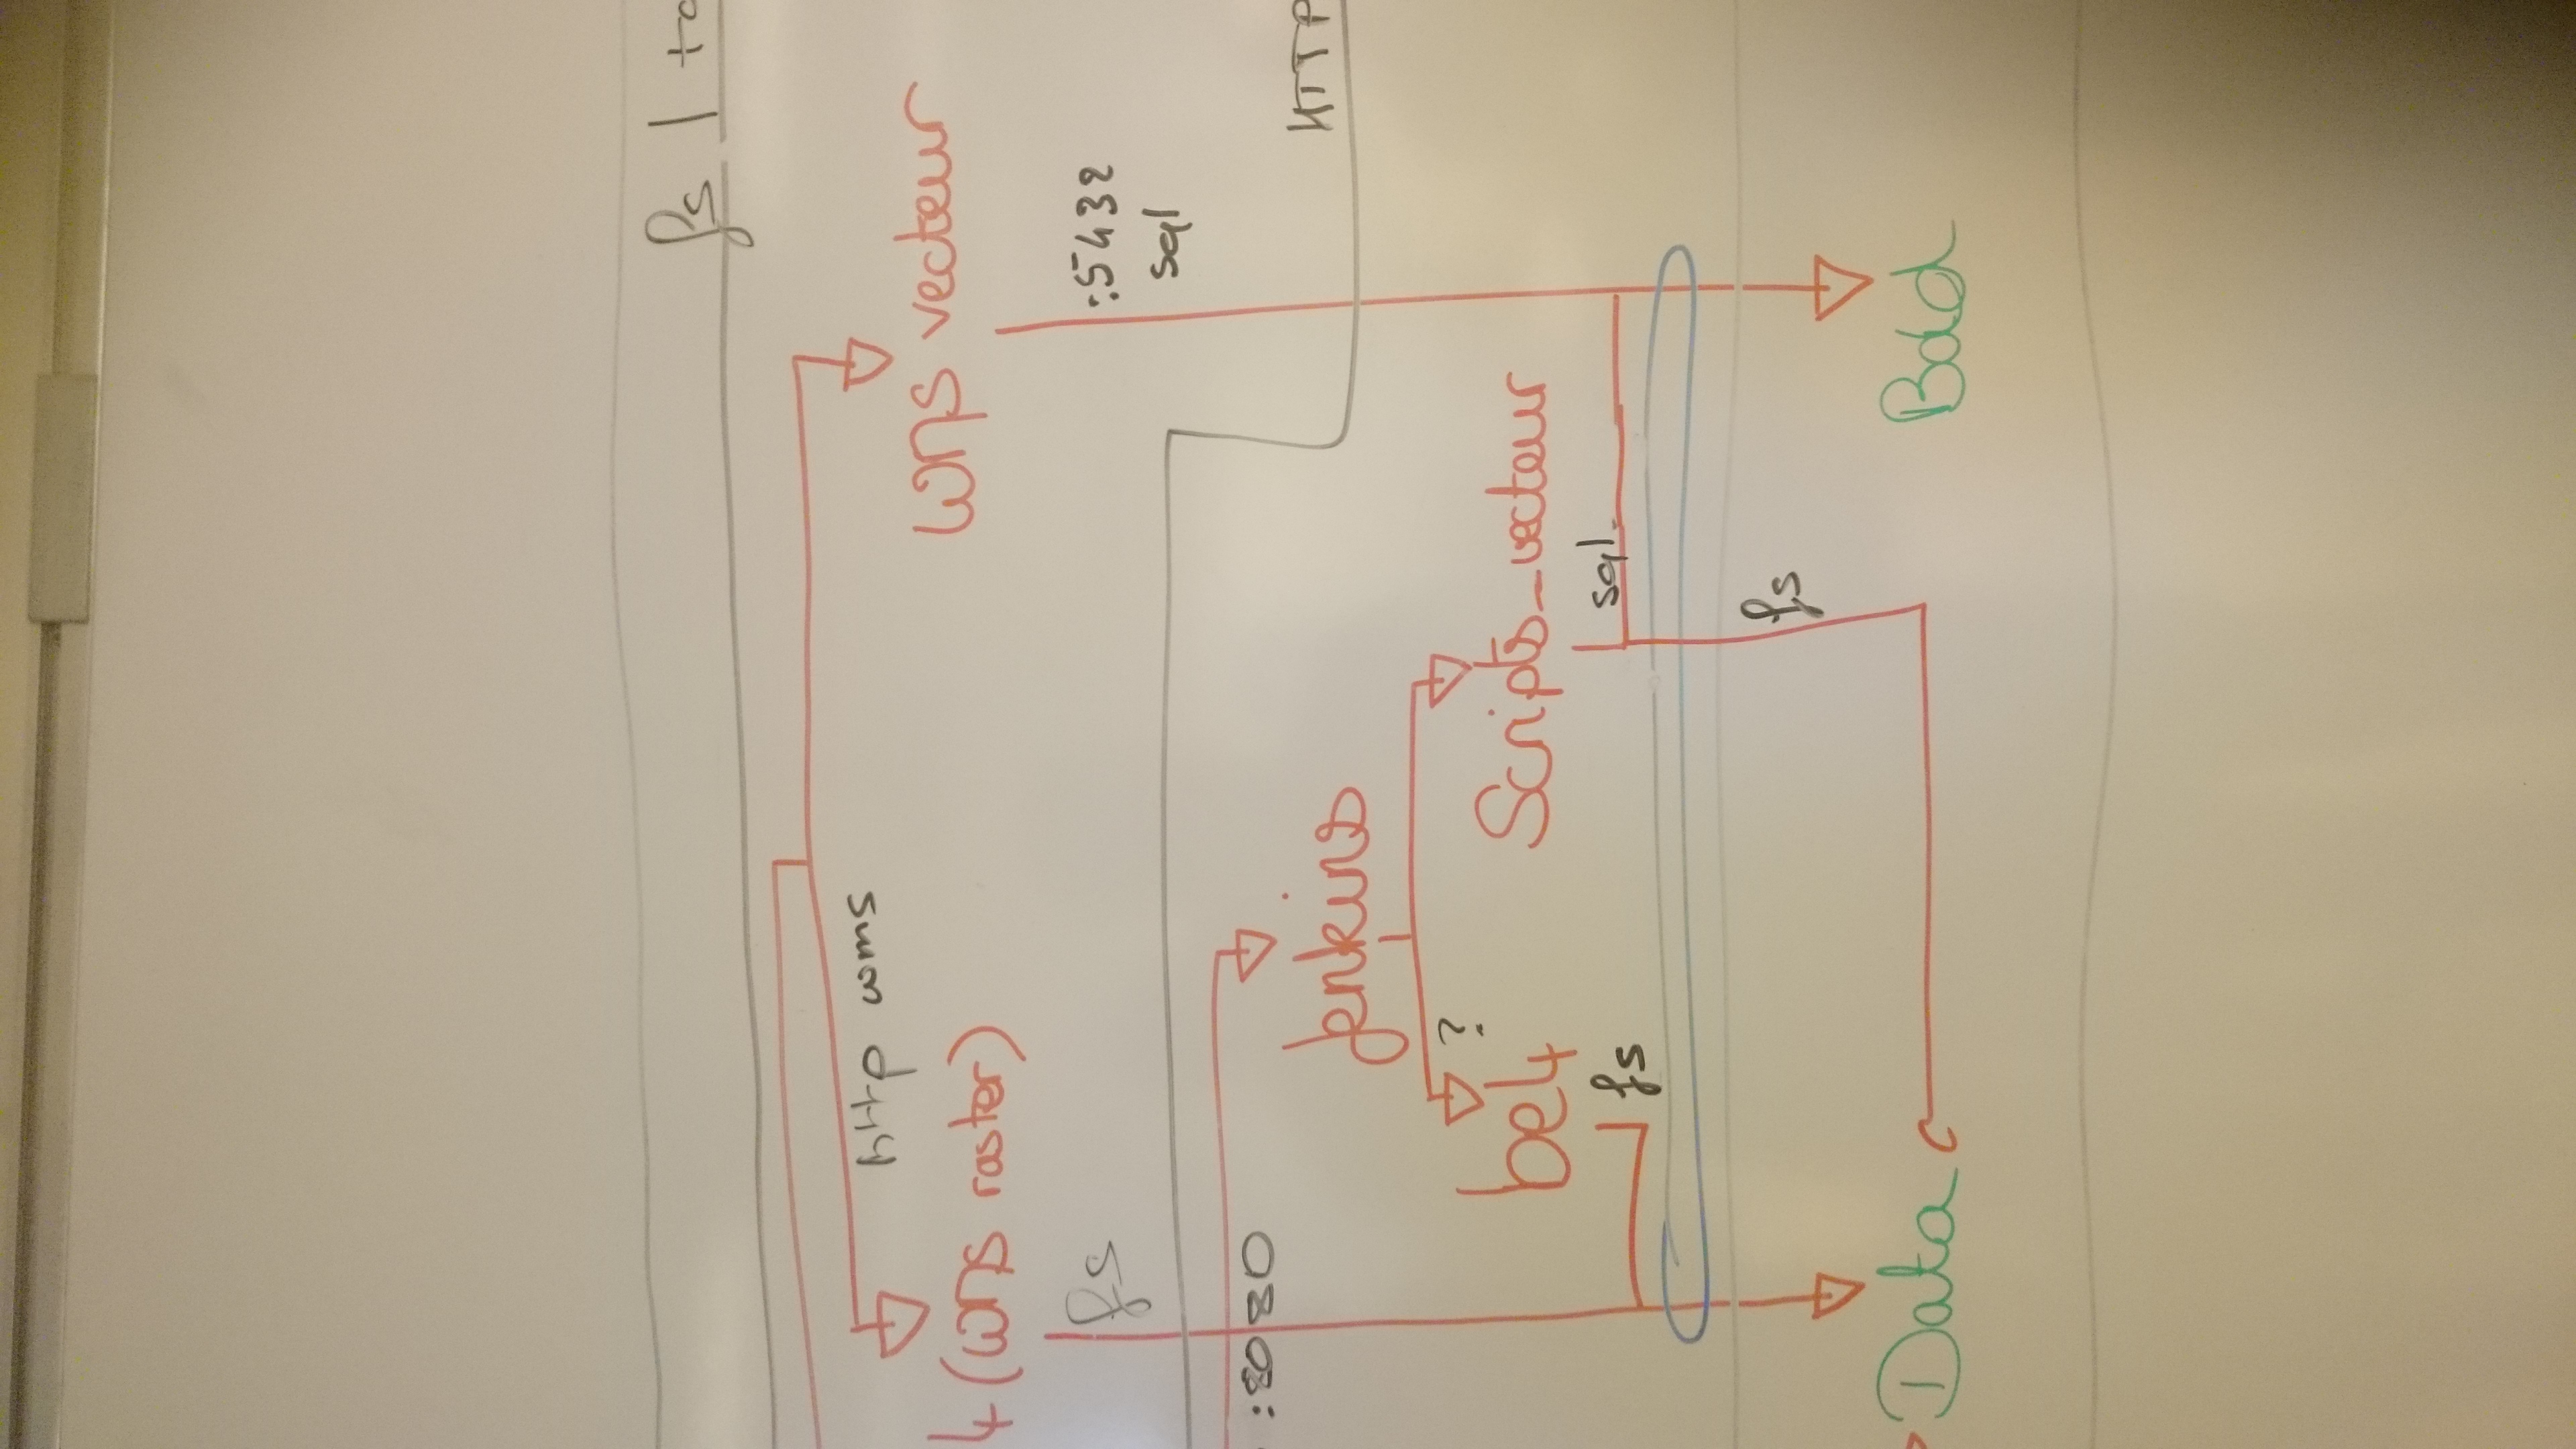 fs | to
http wms
4 (WMS raster)
WMS vecteur
fs
:5432
sql
:8080
Jenkins
HTTP
?
be4
Scripts_vecteur
fs
sql
fs
Data
Bdd